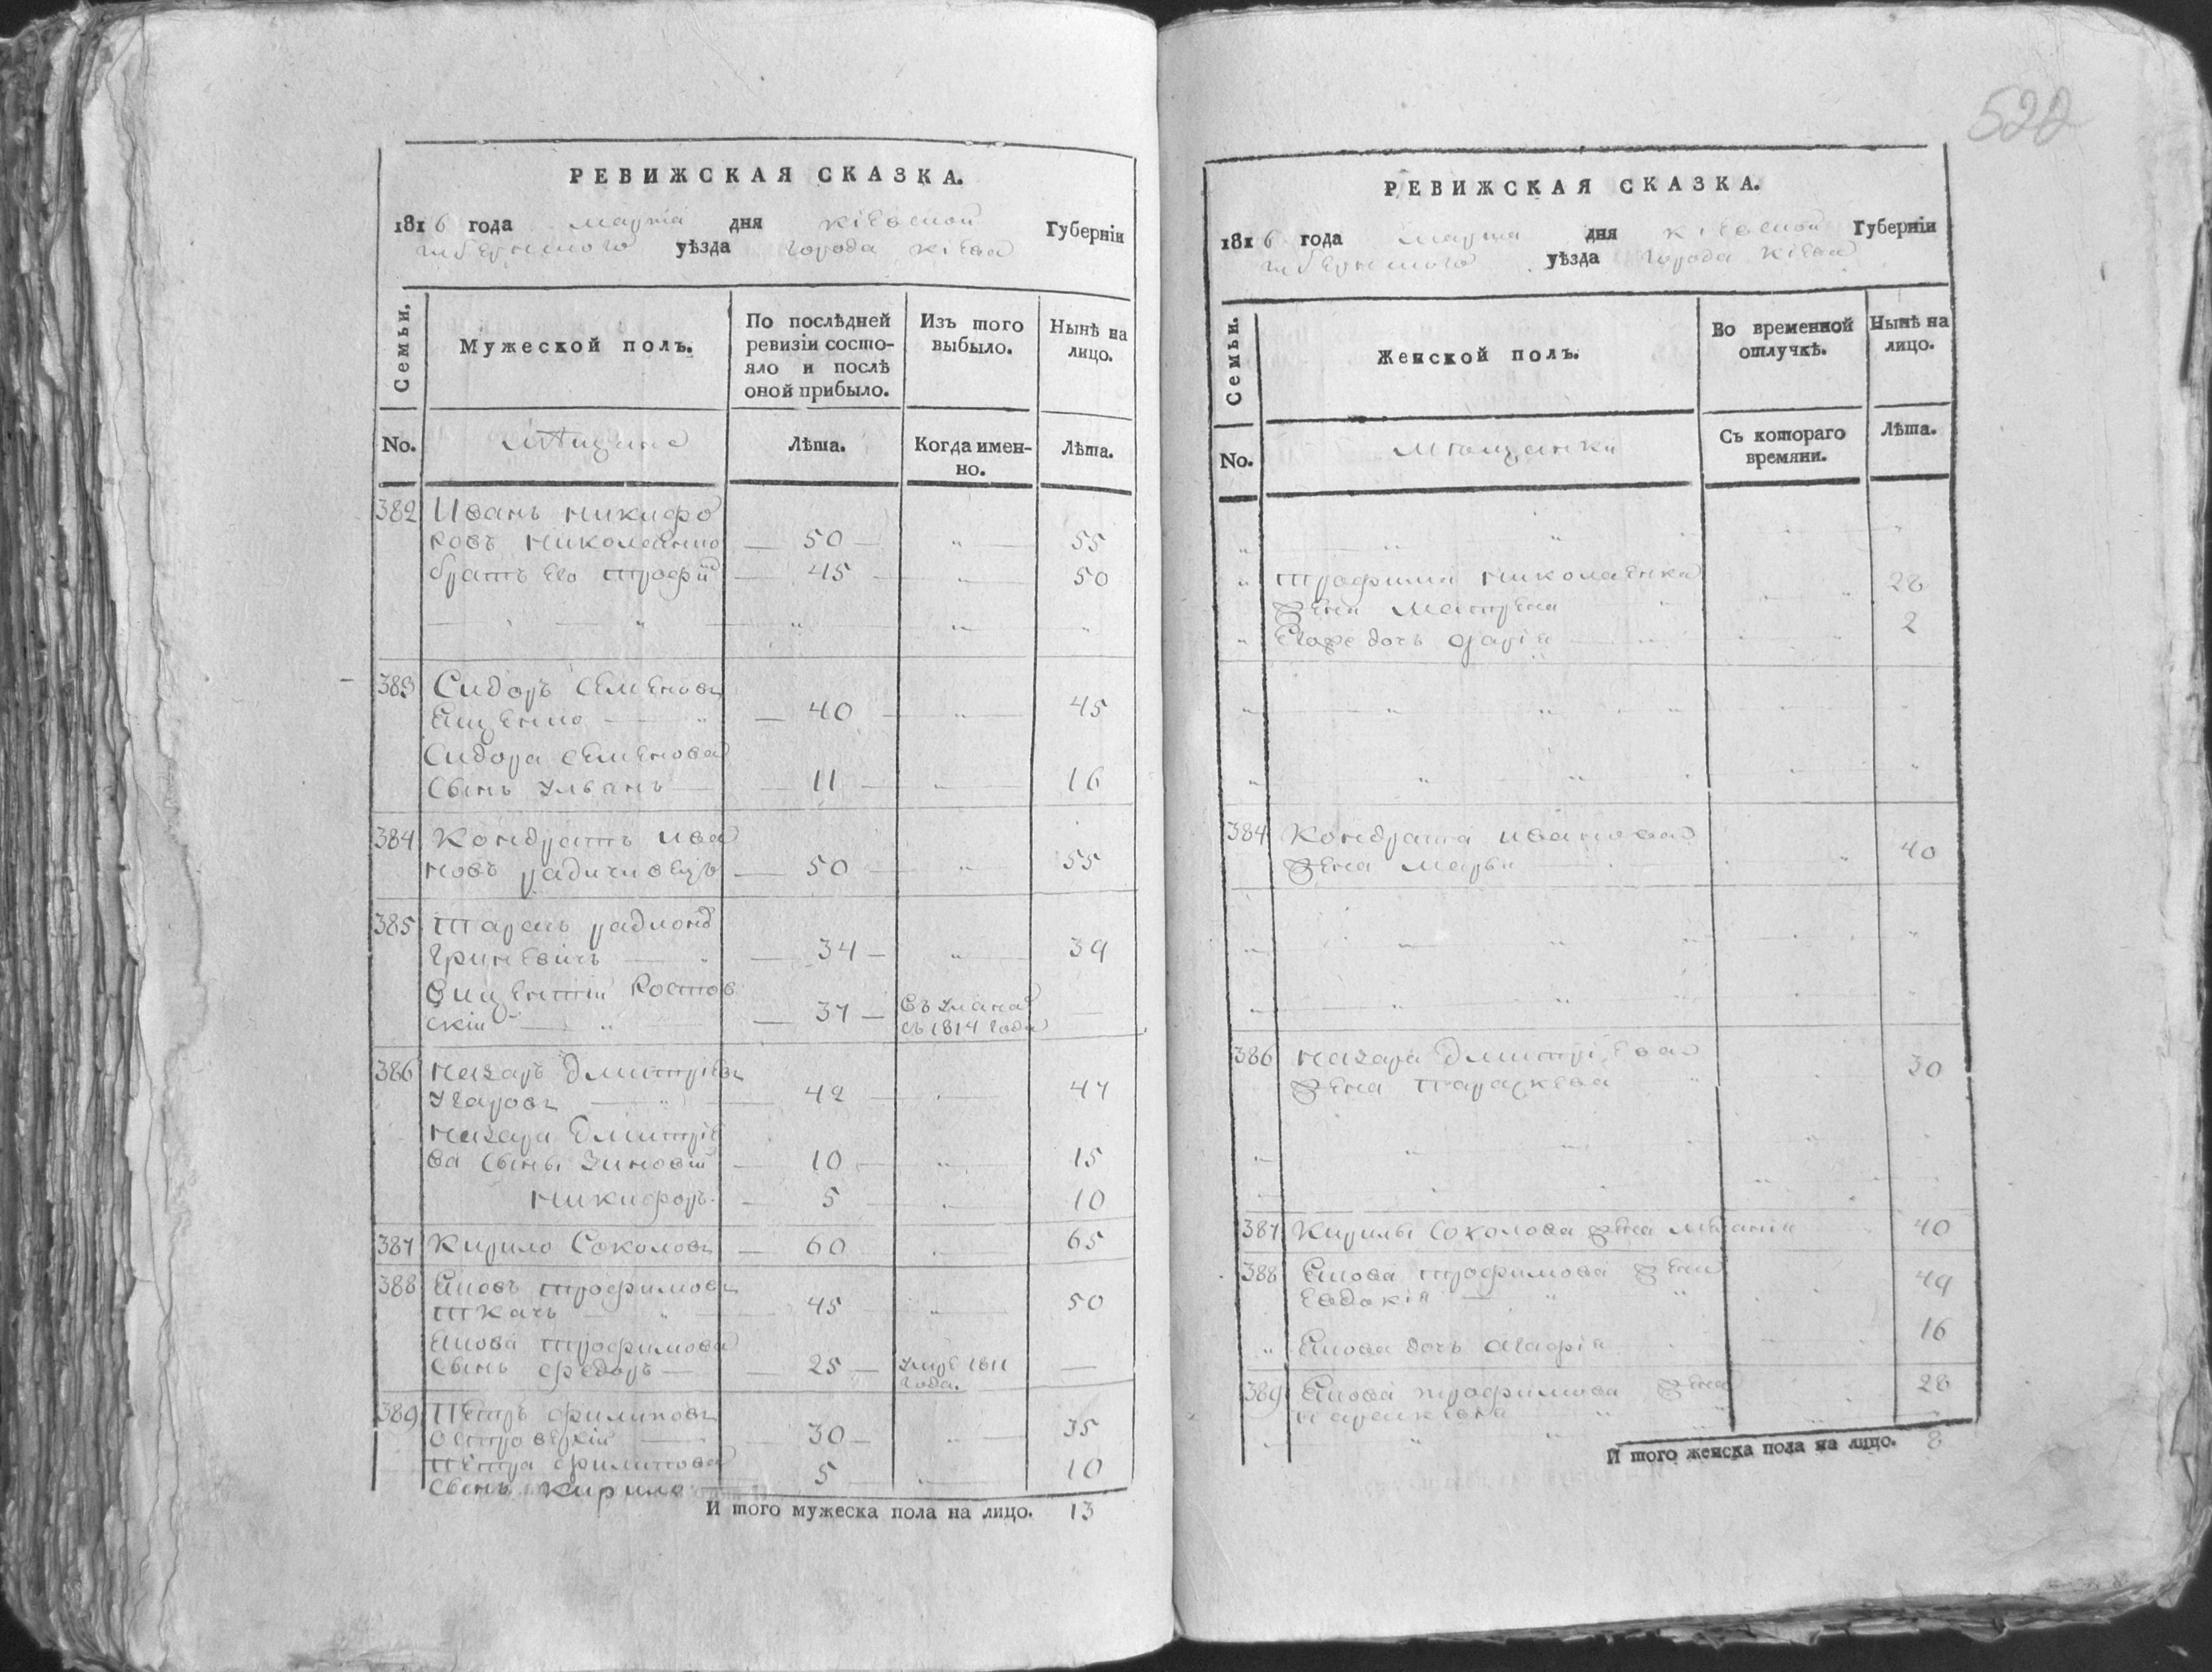 522
РЕВИЖСКАЯ СКАЗКА.
1816 года марта дня Кіевской Губерніи
губернского уѣзда города Кіева
Семьи.
Мужеской полъ.
По послѣдней ревизіи состояло и послѣ оной прибыло.
Изъ того выбыло.
Нынѣ на лицо.
No.
мѣщане
Лѣта.
Когда именно.
Лѣта.
382 Иванъ Никифо
ровъ Николаенко — 50 — 55
братъ его Трофи — 45 — 50
383 Сидоръ Семеновъ
— 40 — 45
Сидора Семенова
сынъ Ульянъ — 11 — 16
384 Кондратъ Ива
новъ — 50 — 55
385 Тарасъ
Гриневичъ — 34 — 39
Вицентій Ростов
скій — 37 — съ 1814 года —
386 Назаръ Дмитріевъ
Угаровъ — 42 — 47
Назара Дмитріе
ва сыны Зиновій — 10 — 15
Никифоръ — 5 — 10
387 Кирило Соколовъ — 60 — 65
388 Яковъ Трофимовъ
Ткачъ — 45 — 50
Якова Трофимова
сынъ Федоръ — 25 — умре 1811 года. —
389 Петръ Филиповъ
Островскій — 30 — 35
Петра Филипова
сынъ Кирило 5 — 10
И того мужеска пола на лицо. 13
РЕВИЖСКАЯ СКАЗКА.
1816 года марта дня Кіевской Губерніи
губернского уѣзда города Кіева
Семьи.
Женской полъ.
Во временной отлучкѣ.
Нынѣ на лицо.
No.
мѣщанки
Съ котораго времяни.
Лѣта.
Трофима Николаенка 28
жена Матрена
дочь 2
384 Кондрата Иванова
жена Марья 40
386 Назара Дмитріева
жена Параскева 30
387 Кирилы Соколова жена Меланія 40
388 Якова Трофимова жена
Евдокія 49
Якова дочь Агафія 16
389 Якова Трофимова жена 28
Параскева
И того женска пола на лицо. 8